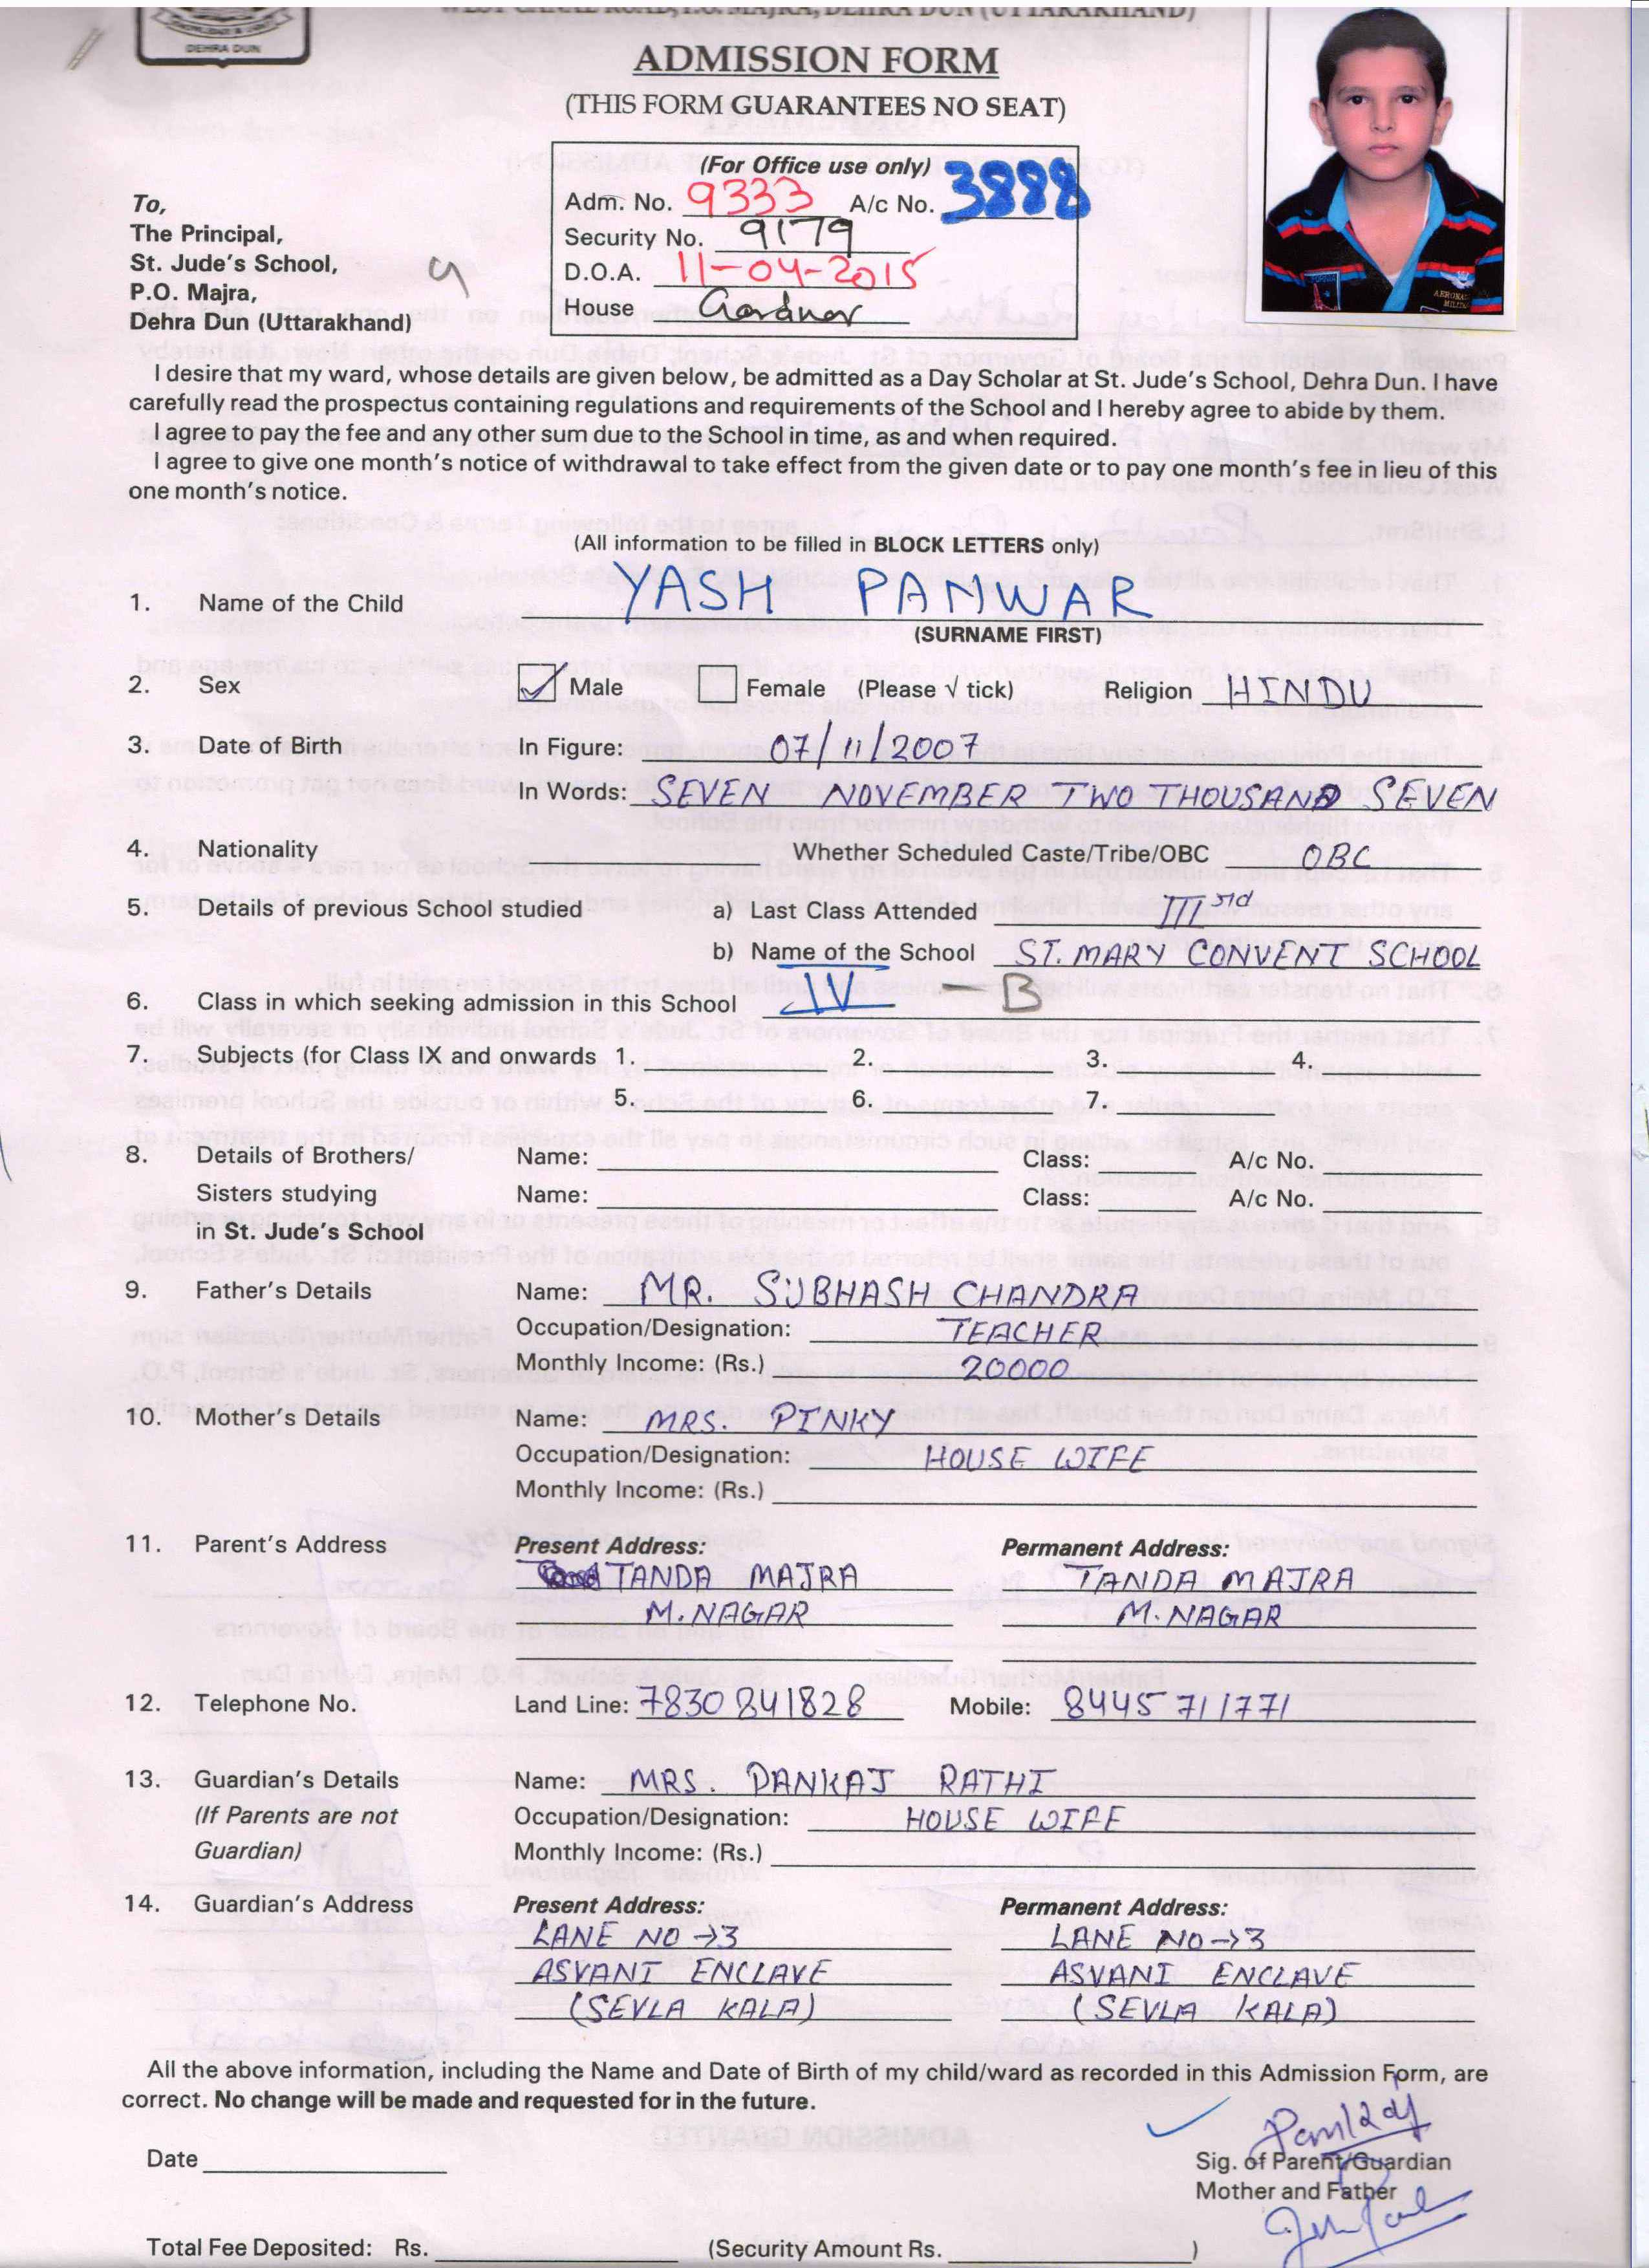 WEST CANAL ROAD, P.O. MAJRA, DEHRA DUN (UTTARAKHAND)
DEHRA DUN
ADMISSION FORM
(THIS FORM GUARANTEES NO SEAT)
(For Office use only)
Adm. No. 9333 A/c No. 3888
Security No. 9179
D.O.A. 11-04-2015
House Gardner
To,
The Principal,
St. Jude's School,
P.O. Majra,
Dehra Dun (Uttarakhand)
9
I desire that my ward, whose details are given below, be admitted as a Day Scholar at St. Jude's School, Dehra Dun. I have
carefully read the prospectus containing regulations and requirements of the School and I hereby agree to abide by them.
I agree to pay the fee and any other sum due to the School in time, as and when required.
I agree to give one month's notice of withdrawal to take effect from the given date or to pay one month's fee in lieu of this
one month's notice.
(All information to be filled in BLOCK LETTERS only)
1. Name of the Child YASH PANWAR
(SURNAME FIRST)
2. Sex Male Female (Please √ tick) Religion HINDU
3. Date of Birth In Figure: 07/11/2007
In Words: SEVEN NOVEMBER TWO THOUSAND SEVEN
4. Nationality Whether Scheduled Caste/Tribe/OBC OBC
5. Details of previous School studied a) Last Class Attended III rd
b) Name of the School ST. MARY CONVENT SCHOOL
6. Class in which seeking admission in this School IV - B
7. Subjects (for Class IX and onwards 1. 2. 3. 4.
5. 6. 7.
8. Details of Brothers/ Name: Class: A/c No.
Sisters studying Name: Class: A/c No.
in St. Jude's School
9. Father's Details Name: MR. SUBHASH CHANDRA
Occupation/Designation: TEACHER
Monthly Income: (Rs.) 20000
10. Mother's Details Name: MRS. PINKY
Occupation/Designation: HOUSE WIFE
Monthly Income: (Rs.)
11. Parent's Address Present Address: Permanent Address:
TANDA MAJRA TANDA MAJRA
M.NAGAR M.NAGAR
12. Telephone No. Land Line: 7830841828 Mobile: 8445711771
13. Guardian's Details Name: MRS. PANKAJ RATHI
(If Parents are not Occupation/Designation: HOUSE WIFE
Guardian) Monthly Income: (Rs.)
14. Guardian's Address Present Address: Permanent Address:
LANE NO →3 LANE NO →3
ASVANI ENCLAVE ASVANI ENCLAVE
(SEVLA KALA) (SEVLA KALA)
All the above information, including the Name and Date of Birth of my child/ward as recorded in this Admission Form, are
correct. No change will be made and requested for in the future.
Date
Sig. of Parent/Guardian
Mother and Father
Total Fee Deposited: Rs. (Security Amount Rs. )